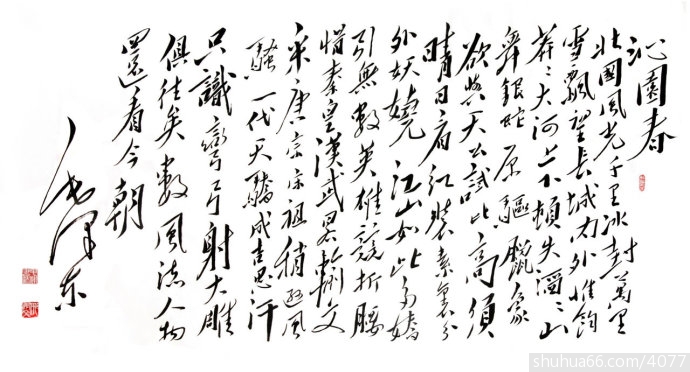 沁園春
北國風光千里冰封萬里
雪飄望長城內外惟餘
莽〻大河上下頓失滔〻山
舞銀蛇原驅臘象
欲與天公試比高須
晴日看紅裝素裹分
外妖嬈江山如此多嬌
引無數英雄競折腰
惜秦皇漢武略輸文
采唐宗宋祖稍遜風
騷一代天驕成吉思汗
只識彎弓射大雕
俱往矣數風流人物
還看今朝
毛澤東
shuhua66.com/4077